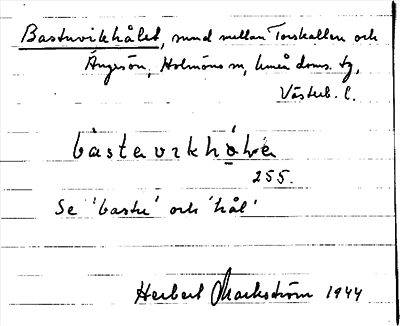 Bastuvikhålet, sund mellan Torskallen och
Ängesön, Holmöns sn, Umeå doms. tg,
Västerb. l.
bàstavɪkhó̱ḷa
255.
Se 'bastu' och 'hål'
Herbert Markström 1944